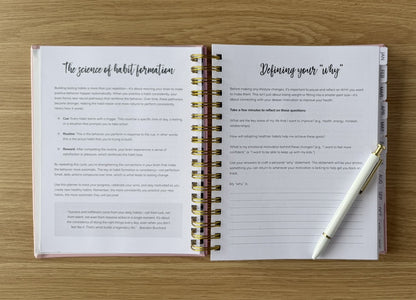 The science of habit formation
Building lasting habits is more than just repetition—it's about rewiring your brain to make
positive behavior happen automatically. When you practice a habit consistently, your
brain forms new neural pathways that reinforce the behavior. Over time, these pathways
become stronger, making the habit easier and more natural to perform consistently.
Here's how it works:
Cue: Every habit starts with a trigger. This could be a specific time of day, a feeling,
or a situation that prompts you to take action.
Routine: This is the behavior you perform in response to the cue. In other words,
this is the actual habit you're trying to build.
Reward: After completing the routine, your brain experiences a sense of
satisfaction or pleasure, which reinforces the habit loop.
By repeating this cycle, you're strengthening the connections in your brain that make
the behavior more automatic. The key to habit formation is consistency—
small, daily actions compound over time, which is what leads to lasting change.
Use this planner to track your progress, celebrate your wins, and stay motivated as you
create new healthy habits. Remember, the more consistently you practice your new
habits, the more automatic they will become!
"Success and fulfillment come from your daily habits - not from luck, not
from talent, not even from massive action in a single moment. It's about
the consistency of doing the right things every day, even when you don't
feel like it. That's what builds a legendary life." - Brendon Burchard
Defining your "why"
Before making any lifestyle changes, it's important to pause and reflect on WHY you want
to make them. This isn't just about losing weight or fitting into a smaller pant size—it's
about connecting with your deeper motivation to improve your health.
Take a few minutes to reflect on these questions:
What are the key areas of my life that I want to improve (e.g., health, energy, mindset,
relationships)?
How will adopting healthier habits help me achieve these goals?
What is my emotional motivation behind these changes? (e.g., "I want to feel more
confident," or "I want to be able to keep up with my kids.")
Use your answers to craft a personal "why" statement. This statement will be your anchor,
something you can return to whenever your motivation is lacking to help get you back on
track.
My "why" is:
JAN
FEB
MAR
AUG
SEP